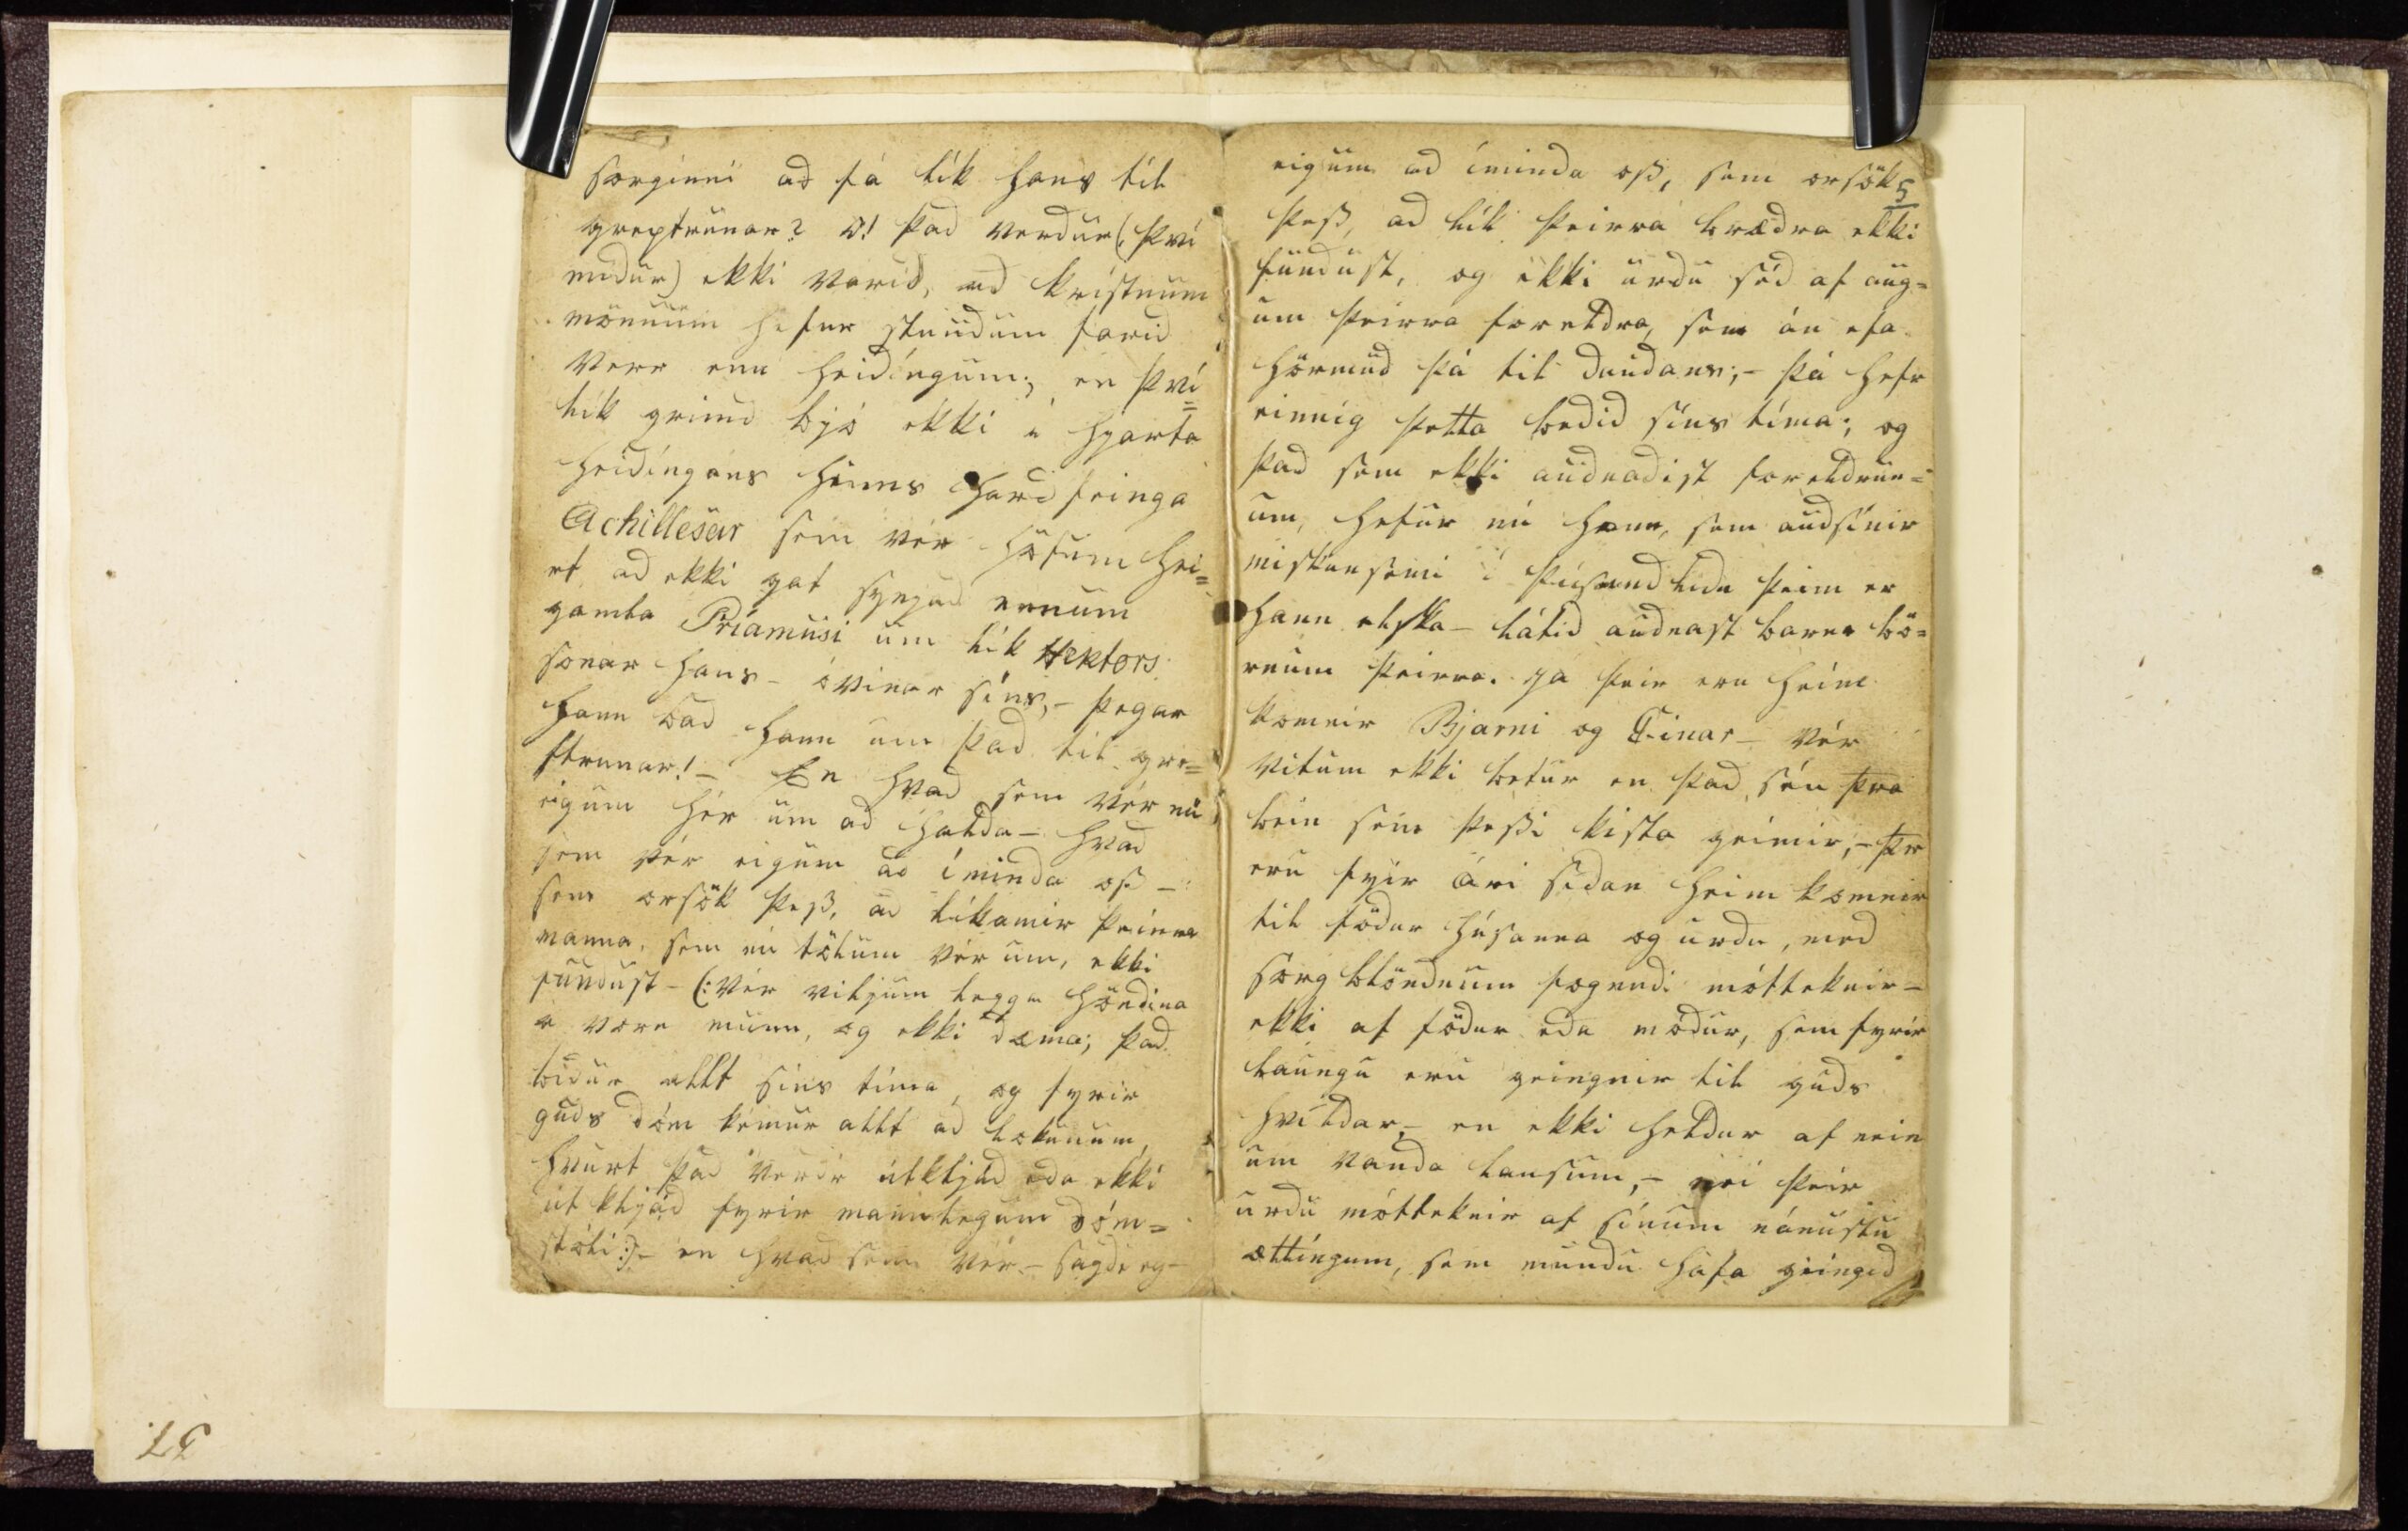 sorginni ad fá lík hans til
greptrunar? O! þad verdur (því
midur) ekki varid, ad kristnum
mönnum hefur stundum farid
verr enn heidíngum; en því=
lík grimd bjó ekki i hjarta
heidíngans hinns hardfeinga
Achillesar sem vér höfum hei=
rt, ad ekki gat synjad ennum
gamla Príamusi um lík Hektors
sonar hans – óvinar síns, – þegar
hann bad hann um þad til gre=
ftrunar! – En hvad sem vér nú
eigum hér um ad halda – hvad
sem vér eigum ad íminda oß –
sem orsök þeß, ad líkamir þeirra
manna, sem nú tölum vér um, ekki
fundust – (: vér viljum leggja höndina
a vorn munn, og ekki dæma; þad
bídur allt síns tíma, og fyrir
guds dóm kémur allt ad lokunum,
hvurt þad verdr útkljád eda ekki
út kljád fyrir mannlegum dóm=
stóli :) – en hvad sem vér – sagdi eg –
eigum ad íminda oß, sem orsök
5
þeß, ad lík þeirra brædra ekki
fundust, og ekki urdu séd af aug=
um þeirra foreldra, sem án efa
hörmud þá til daudans; – þá hefr
einnig þetta bedid síns tíma; og
þad sem ekki audnadist foreldrun=
um, hefur nú hann, sem audsínir
miskunsemi i þúsund lidu þeim er
hann elska – látid audnast barna bö=
rnum þeirra. Ja þeir eru heim
komnir Bjarni og Einar – vér
vitum ekki betur en þad séu þra
bein sem þeßi kista geimir, – þr
eru fyir ári sídan heim komnir
til födur húsanna og urdu, med
sorg blöndnum fögnudi mótteknir –
ekki af födur eda módur, sem fyrir
laungu eru geingnir til guds
hvíldar, – en ekki heldur af nein
um vanda lausum, – nei þeir
urdu mótteknir af sínum nánustu
ættíngum, sem mundu hafa geingid
37.